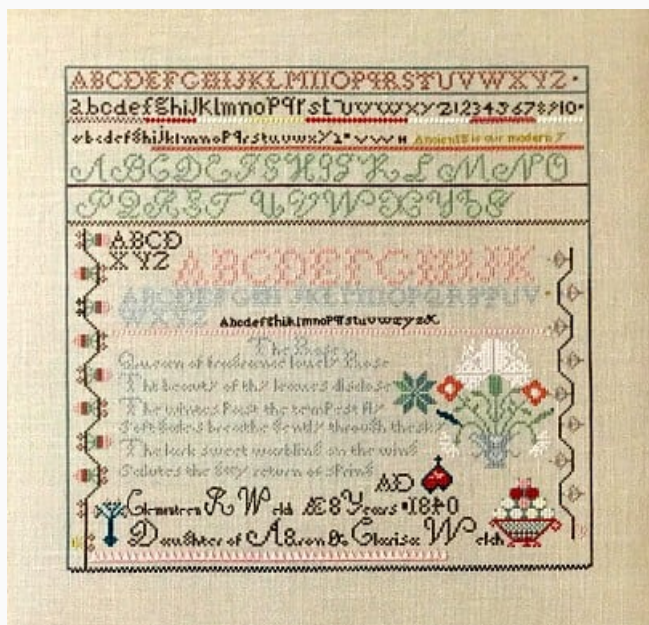 ABCDEFGHIJKLMNOPQRSTUVWXYZ
abcdefghiJklmnoPqrstuvwxyz12345678910
abcdefghiJklmnoPqrstuvwxyz
ABCDEFGHIJKLMNO
PQRSTUVWXYZ
ABCD
XYZ
ABCDEFGHIJK
ABCDEFGHIJKLMNOPQRSTUV
WXYZ
AbcdefghiklmnoPqrstuvwxyz&
The Rose
Queen of fragrance lovely Rose
The beauty of thy leaves disclose
The winters Past the tempest fly
Soft Gales breathe Gently through the sky
The lark sweet warbling on the wing
Salutes the Gay return of spring
AD
R Welch Æ 8 Years 1840
Daughter of Aaron & Clarisa Welch